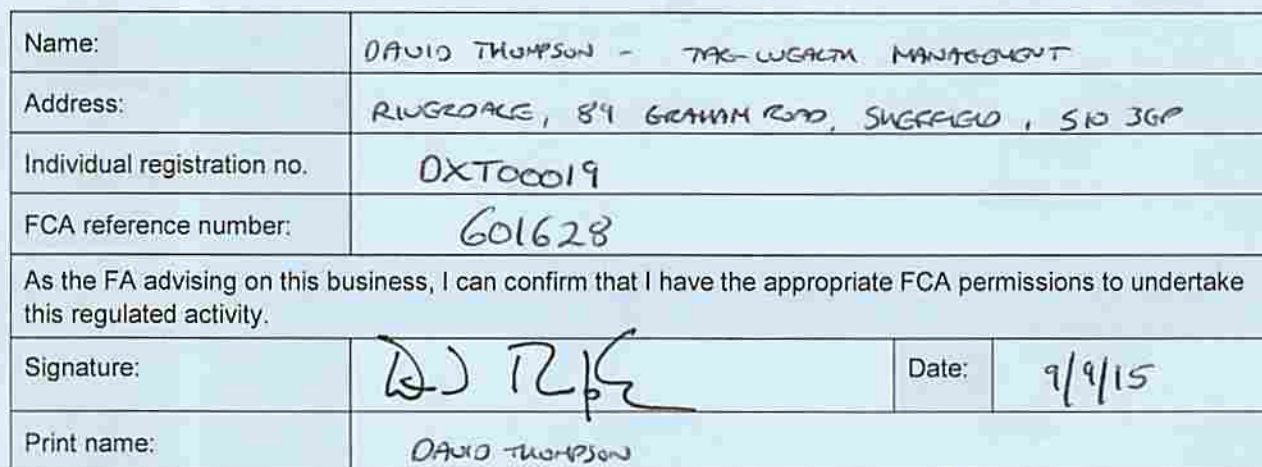 Name: DAVID THOMPSON - TAG-WEALTH MANAGEMENT
Address: RIVERDALE, 89 GRAHAM ROAD, SHEFFIELD, S10 3GP
Individual registration no. DXT00019
FCA reference number: 601628
As the FA advising on this business, I can confirm that I have the appropriate FCA permissions to undertake
this regulated activity.
Signature: Date: 9/9/15
Print name: DAVID THOMPSON